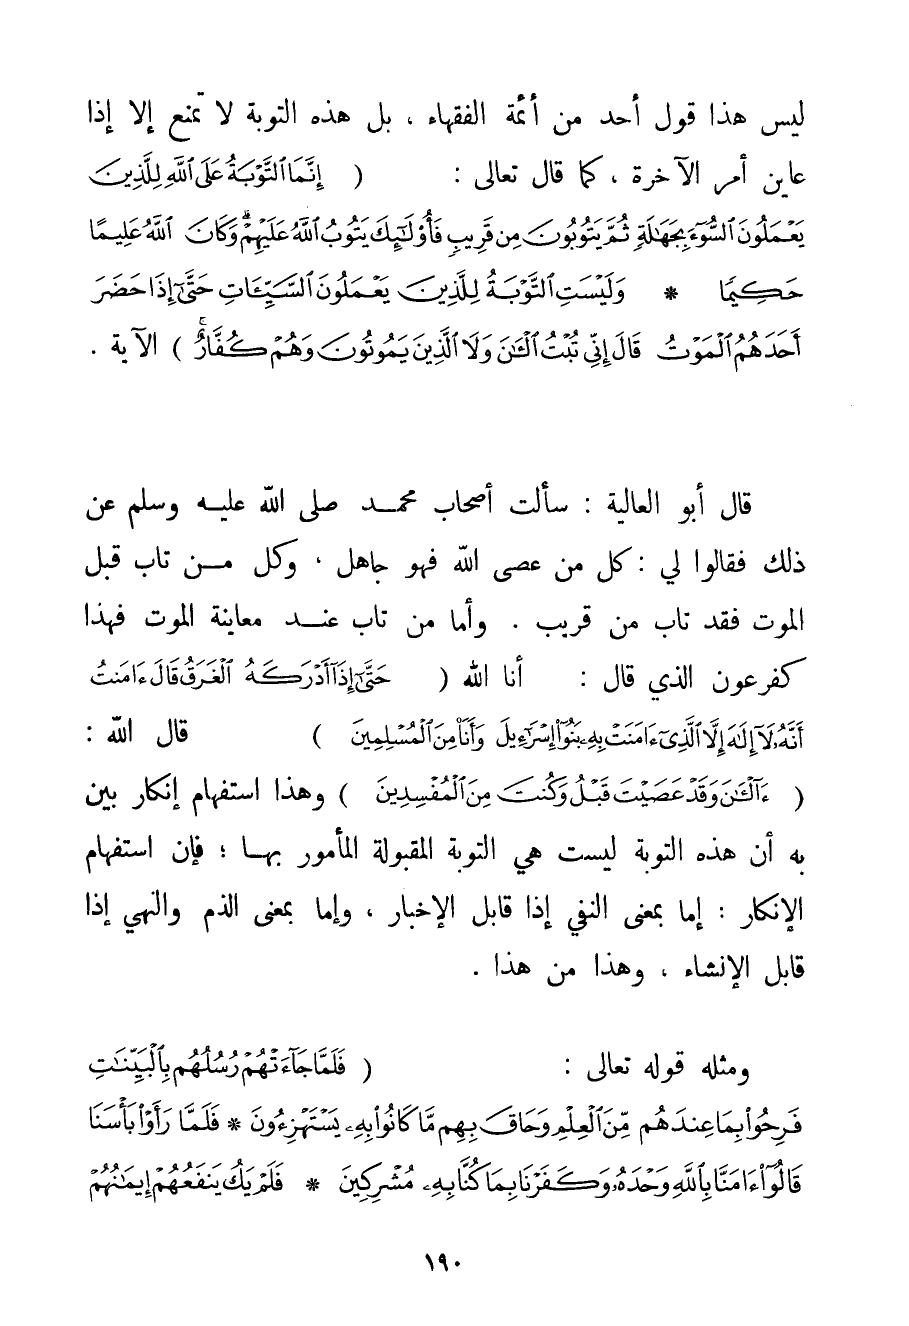 ليس هذا قول أحد من أئمة الفقهاء ، بل هذه التوبة لا تمنع إلا إذا
عاين أمر الآخرة ، كما قال تعالى : ( إِنَّمَا ٱلتَّوۡبَةُ عَلَى ٱللَّهِ لِلَّذِينَ
يَعۡمَلُونَ ٱلسُّوٓءَ بِجَهَٰلَةٖ ثُمَّ يَتُوبُونَ مِن قَرِيبٖ فَأُوْلَٰٓئِكَ يَتُوبُ ٱللَّهُ عَلَيۡهِمۡۗ وَكَانَ ٱللَّهُ عَلِيمًا
حَكِيمٗا * وَلَيۡسَتِ ٱلتَّوۡبَةُ لِلَّذِينَ يَعۡمَلُونَ ٱلسَّيِّـَٔاتِ حَتَّىٰٓ إِذَا حَضَرَ
أَحَدَهُمُ ٱلۡمَوۡتُ قَالَ إِنِّي تُبۡتُ ٱلۡـَٰٔنَ وَلَا ٱلَّذِينَ يَمُوتُونَ وَهُمۡ كُفَّارٌۚ ) الآية .
قال أبو العالية : سألت أصحاب محمد صلى الله عليه وسلم عن
ذلك فقالوا لي : كل من عصى الله فهو جاهل ، وكل من تاب قبل
الموت فقد تاب من قريب . وأما من تاب عند معاينة الموت فهذا
كفرعون الذي قال : أنا الله ( حَتَّىٰٓ إِذَآ أَدۡرَكَهُ ٱلۡغَرَقُ قَالَ ءَامَنتُ
أَنَّهُۥ لَآ إِلَٰهَ إِلَّا ٱلَّذِيٓ ءَامَنَتۡ بِهِۦ بَنُوٓاْ إِسۡرَٰٓءِيلَ وَأَنَا۠ مِنَ ٱلۡمُسۡلِمِينَ ) قال الله :
( ءَآلۡـَٰٔنَ وَقَدۡ عَصَيۡتَ قَبۡلُ وَكُنتَ مِنَ ٱلۡمُفۡسِدِينَ ) وهذا استفهام إنكار بين
به أن هذه التوبة ليست هي التوبة المقبولة المأمور بها ؛ فإن استفهام
الإنكار : إما بمعنى النفي إذا قابل الإخبار ، وإما بمعنى الذم والنهي إذا
قابل الإنشاء ، وهذا من هذا .
ومثله قوله تعالى : ( فَلَمَّا جَآءَتۡهُمۡ رُسُلُهُم بِٱلۡبَيِّنَٰتِ
فَرِحُواْ بِمَا عِندَهُم مِّنَ ٱلۡعِلۡمِ وَحَاقَ بِهِم مَّا كَانُواْ بِهِۦ يَسۡتَهۡزِءُونَ * فَلَمَّا رَأَوۡاْ بَأۡسَنَا
قَالُوٓاْ ءَامَنَّا بِٱللَّهِ وَحۡدَهُۥ وَكَفَرۡنَا بِمَا كُنَّا بِهِۦ مُشۡرِكِينَ * فَلَمۡ يَكُ يَنفَعُهُمۡ إِيمَٰنُهُمۡ
١٩٠